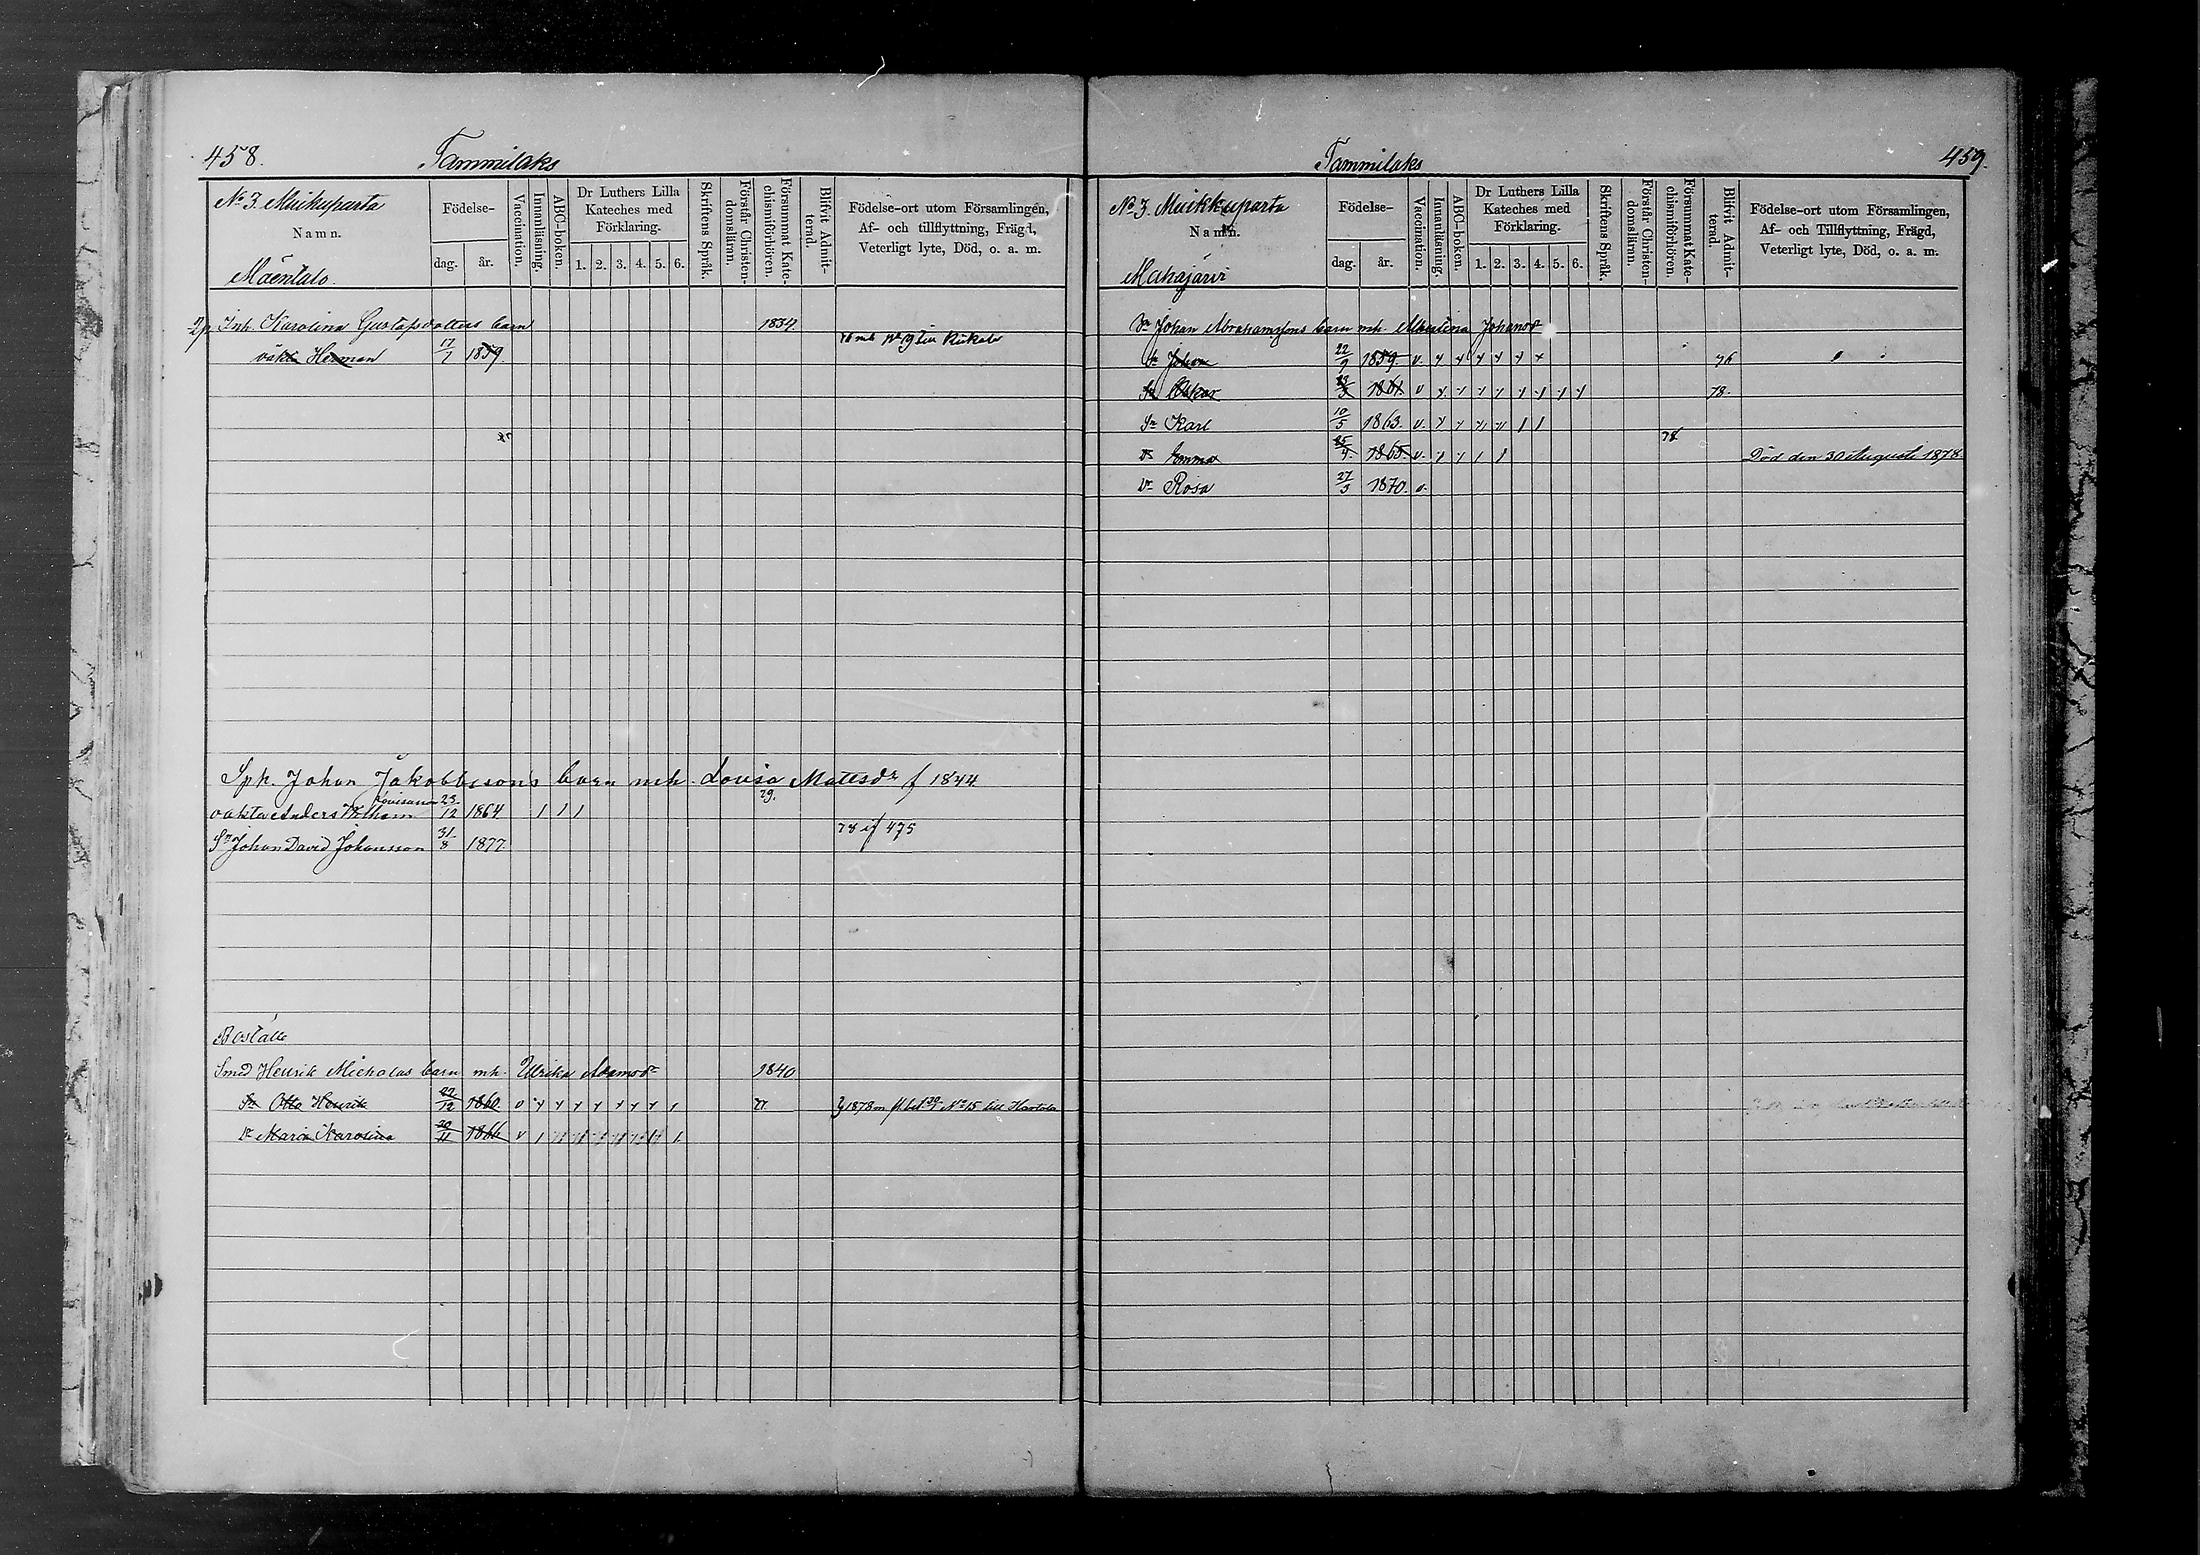 458. Tammilaks
No 3. Muikuparta
Namn.
Mäentalo.
Födelse-
dag. år.
Vaccination.
Innanläsning.
ABC-boken.
Dr Luthers Lilla Kateches med Förklaring.
1. 2. 3. 4. 5. 6.
Skriftens Språk.
Förstår Christen-domsläran.
Försummat Kate-chismiförhören.
Blifvit Admit-terad.
Födelse-ort utom Församlingen,
Af- och tillflyttning, Frägd,
Veterligt lyte, Död, o. a. m.
Inh. Karolina Gustafsdotters barn 1834.
Herman 17/7 1859.
Spk. Johan Jakobbssons barn mh. Lovisa Mattsdr f 1844
29.
Anders Wilhelm 23/12 1864 1 1 1
Sn Johan David Johansson 31/8 1877 78 if 475
Smed Henrik Michelas barn mh. Ulrika Adamsdr 1840
Sn Otto Henrik 22/12 1860. v
Dr Maria Karolina 20/11 1866 v
Tammilaks 459.
No 3. Muikkuparta
Namn.
Makajärvi
Födelse-
dag. år.
Vaccination.
Innanläsning.
ABC-boken.
Dr Luthers Lilla Kateches med Förklaring.
1. 2. 3. 4. 5. 6.
Skriftens Språk.
Förstår Christen-domslärn.
Försummat Kate-chismiförhören.
Blifvit Admit-terad.
Födelse-ort utom Församlingen,
Af- och Tillflyttning, Frägd,
Veterligt lyte, Död, o. a. m.
Johan Abrahamssons barn mh. Johansdr
Sn Johan 22/9 1859 v. 76
Sn Oskar 1861. v 78.
Sn Karl 10/5 1863. v.
78
Dr Emma 25/4. 1865. v. Död den 30 Augusti 1878
Dr Rosa 27/3 1870. v.